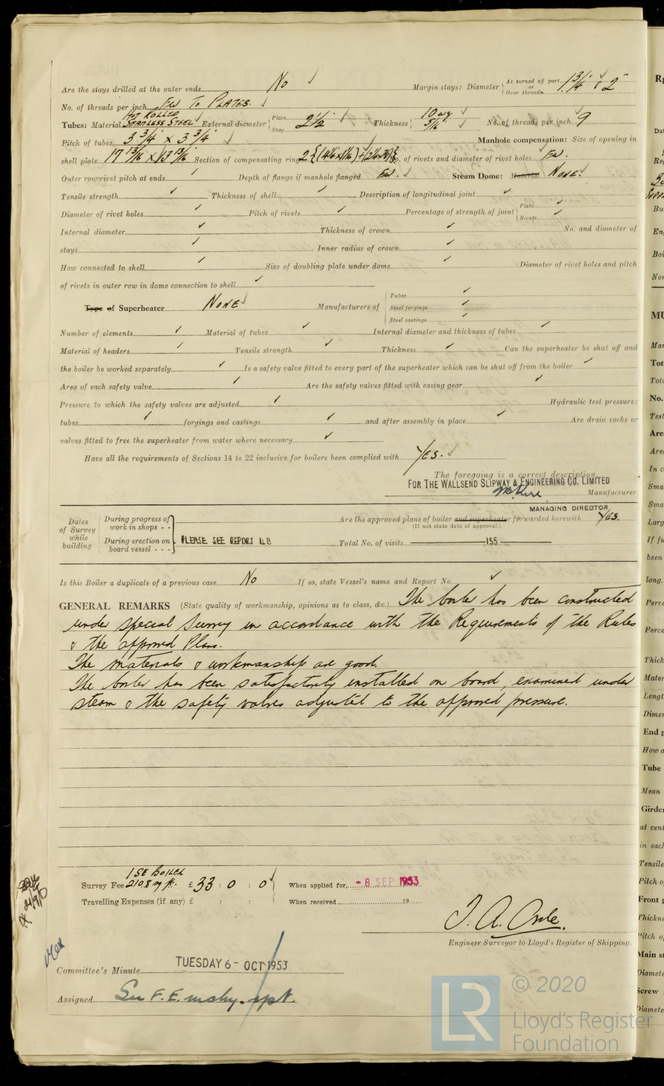 Are the stays drilled at the outer ends No Margin stays: Diameter At turned off part, or Over threads 1 3/4" & 2"
No. of threads per inch To Plates.
Tubes: Material Hot Rolled Seamless Steel External diameter Plain Stay 2 1/2 Thickness 10 wg 5/16 No. of threads per inch 9
Pitch of tubes 3 3/4 x 3 3/4 Manhole compensation: Size of opening in
shell plate Section of compensating ring No. of rivets and diameter of rivet holes
Outer row rivet pitch at ends Depth of flange if manhole flanged Steam Dome: Material None.
Tensile strength Thickness of shell Description of longitudinal joint
Diameter of rivet holes Pitch of rivets Percentage of strength of joint Plate Rivets
Internal diameter Thickness of crown No. and diameter of
stays Inner radius of crown
How connected to shell Size of doubling plate under dome Diameter of rivet holes and pitch
of rivets in outer row in dome connection to shell
Type of Superheater None Manufacturers of Tubes Steel forgings Steel castings
Number of elements Material of tubes Internal diameter and thickness of tubes
Material of headers Tensile strength Thickness Can the superheater be shut off and
the boiler be worked separately Is a safety valve fitted to every part of the superheater which can be shut off from the boiler
Area of each safety valve Are the safety valves fitted with easing gear
Pressure to which the safety valves are adjusted Hydraulic test pressure:
tubes forgings and castings and after assembly in place Are drain cocks or
valves fitted to free the superheater from water where necessary
Have all the requirements of Sections 14 to 22 inclusive for boilers been complied with Yes.
The foregoing is a correct description,
FOR THE WALLSEND SLIPWAY & ENGINEERING CO. LIMITED
Manufacturer.
MANAGING DIRECTOR
Dates of Survey while building During progress of work in shops - - During erection on board vessel - - - PLEASE SEE REPORT 4B
Are the approved plans of boiler and superheater forwarded herewith Yes.
(If not state date of approval.)
Total No. of visits 155
Is this Boiler a duplicate of a previous case No If so, state Vessel's name and Report No.
GENERAL REMARKS (State quality of workmanship, opinions as to class, &c.) The boiler has been constructed
under special survey in accordance with the Requirements of the Rules
& the approved Plan.
The materials & workmanship are good.
The boiler has been satisfactorily installed on board, examined under
steam & the safety valves adjusted to the approved pressure.
Survey Fee £ 33 : 0 : 0 When applied for, - 8 SEP 1953
Travelling Expenses (if any) £ : : When received 19
Engineer Surveyor to Lloyd's Register of Shipping.
Committee's Minute TUESDAY 6 - OCT 1953
Assigned See F.E. mchy. rpt.
© 2020
LR Lloyd's Register
Foundation